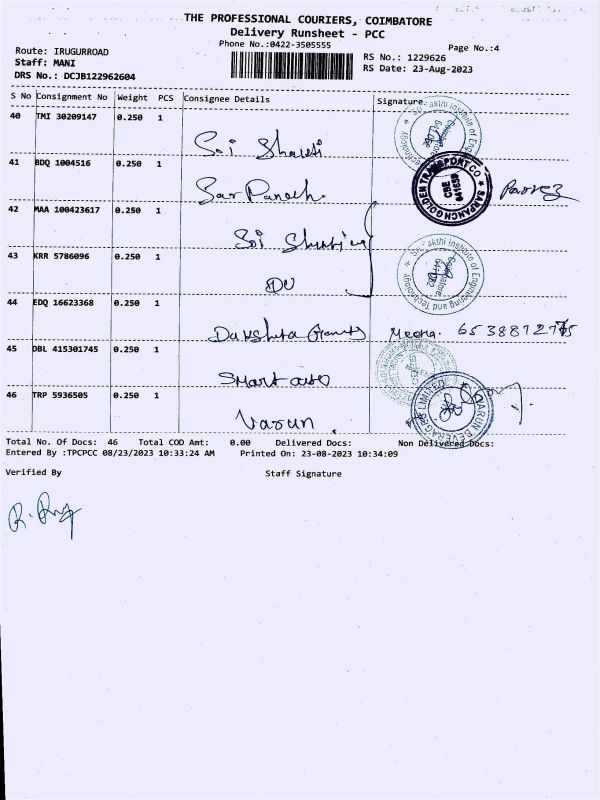 THE PROFESSIONAL COURIERS, COIMBATORE
Delivery Runsheet - PCC
Phone No.:0422-3505555
Page No.:4
Route: IRUGURROAD
Staff: MANI
DRS No.: DCJB122962604
RS No.: 1229626
RS Date: 23-Aug-2023
S No Consignment No Weight PCS Consignee Details Signature
40 TMI 30209147 0.250 1
Sri Shakti
41 BDQ 1004516 0.250 1
SARPANCH GOLDEN TRANSPORT CO
CBE
641659
Sar Panch.
42 MAA 100423617 0.250 1
Sri
43 KRR 5786096 0.250 1
Sri Sakthi Institute of Engineering and Technology
Coimbatore
641 062
44 EDQ 16623368 0.250 1
Meena.
45 DBL 415301745 0.250 1
Smart
46 TRP 5936505 0.250 1
VARUN BEVERAGES LIMITED
Varun.
Total No. Of Docs: 46 Total COD Amt: 0.00 Delivered Docs: Non Delivered Docs:
Entered By :TPCPCC 08/23/2023 10:33:24 AM Printed On: 23-08-2023 10:34:09
Verified By Staff Signature